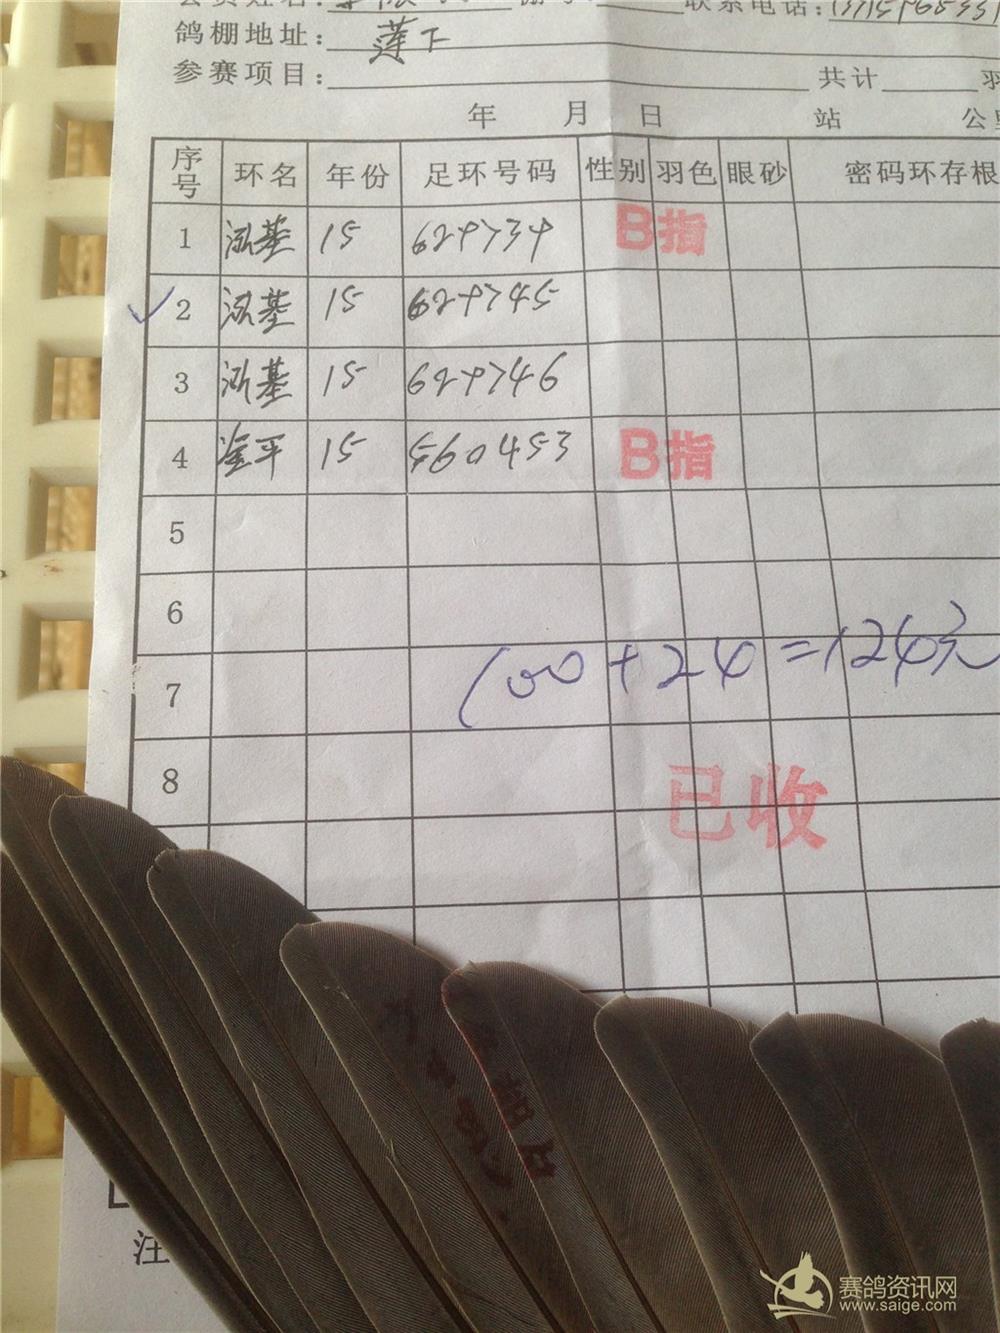 会员姓名: 棚号 联系电话:
鸽棚地址: 莲下
参赛项目: 共计 羽
年 月 日 站 公里
序号 环名 年份 足环号码 性别 羽色 眼砂 密码环存根
1 泓基 15 624734 B指
2 泓基 15 624745
3 泓基 15 624746
4 金平 15 560453 B指
5
6
7 100+24=124元
8 已收
注
赛鸽资讯网
www.saige.com